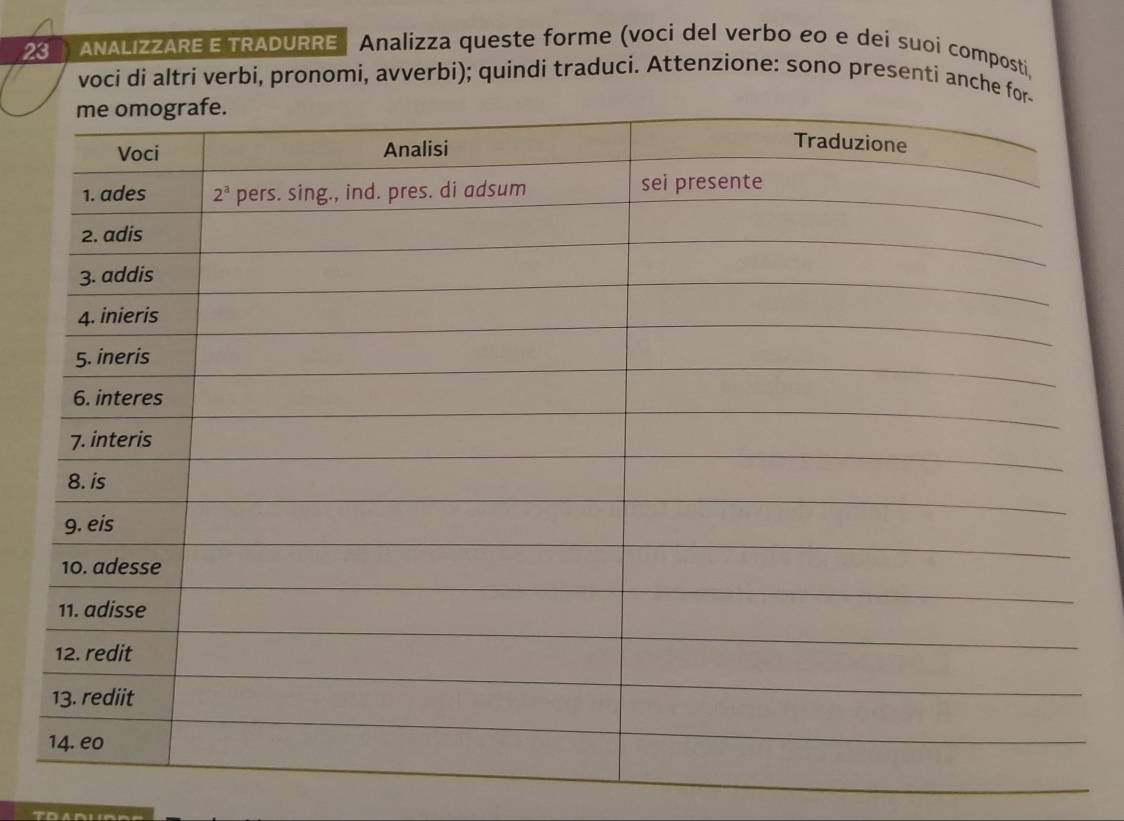 23 ANALIZZARE E TRADURRE Analizza queste forme (voci del verbo eo e dei suoi composti,
voci di altri verbi, pronomi, avverbi); quindi traduci. Attenzione: sono presenti anche for-
me omografe.
Voci Analisi Traduzione
1. ades 2ª pers. sing., ind. pres. di adsum sei presente
2. adis
3. addis
4. inieris
5. ineris
6. interes
7. interis
8. is
9. eis
10. adesse
11. adisse
12. redit
13. rediit
14. eo